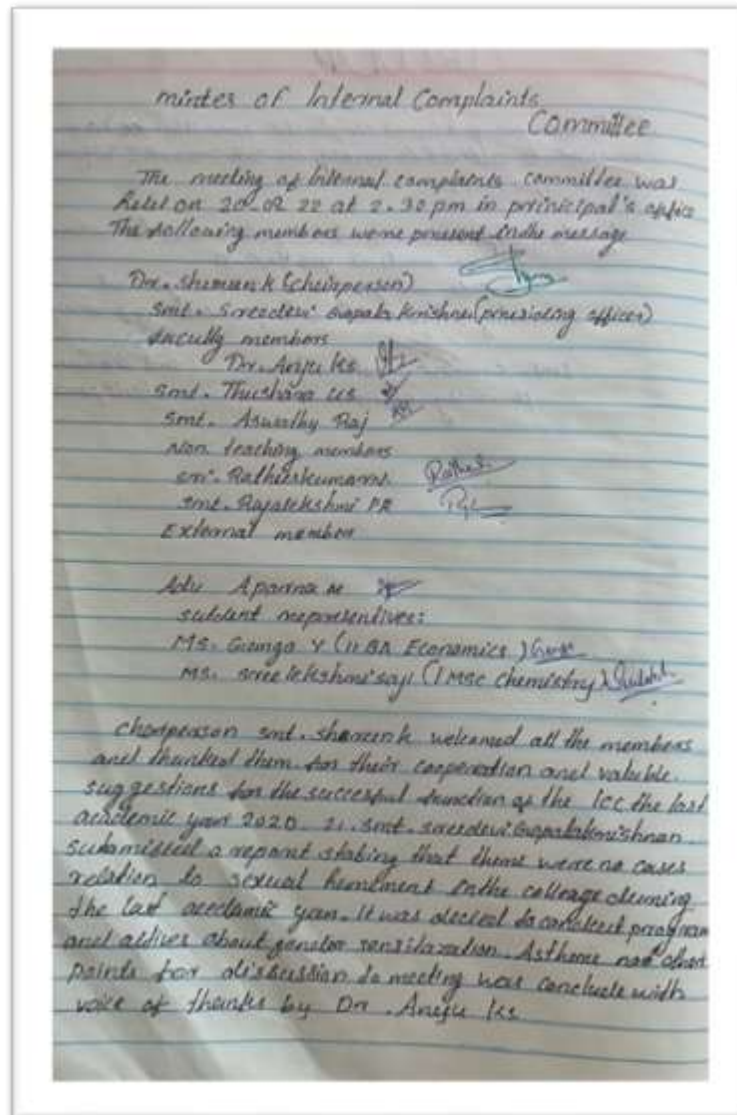 mintes of Internal Complaints
Committee
The meeting of Internal complaints committee was
Held on 20-02 22 at 2.30 pm in prinicipal's office
The following members were present in the message
Dr. Shereen k (chairperson)
Smt. Sreedevi Gopala krishnan (presiding officer)
faculty members
Dr. Anju ks
smt. Thushara
smt. Aswathy Raj
Non teaching members
sri. Ratheeskumar
smt. Rajalekshmi PR
External member
Adv Aparna M
student representives:
MS. Ganga Y (II BA Economics)
MS. sreelekshmi saji (I MSC chemistry)
chairperson smt. shereen k welcomed all the members
and thanked them for their cooperation and valuble
suggestions for the successful function of the ICC the last
academic year 2020 21. smt. sreedevi Gopalakrishnan
submitted a report stating that there were no cases
relation to sexual in the colleage during
the last academic year. It was decied to conduct program
and actives about gender sensilazation. As there
points for discussion to meeting was conclude with
voice of thanks by Dr. Anju ks